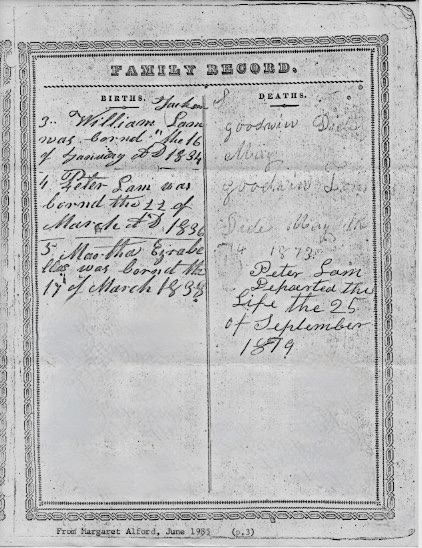 FAMILY RECORD.
BIRTHS.
3 William Lam
was bornd the 16
of January AD 1834
4 Peter Lam was
bornd the 22 of
March AD 1836
5 Martha Ezrabe
lles was bornd the
17 of March 1838
DEATHS.
goodwin Died
May
goodwin Lam
Dide May the
14 1873
Peter Lam
Departed the
Life the 25
of September
1879
From Margaret Alford, June 1985 (p.3)